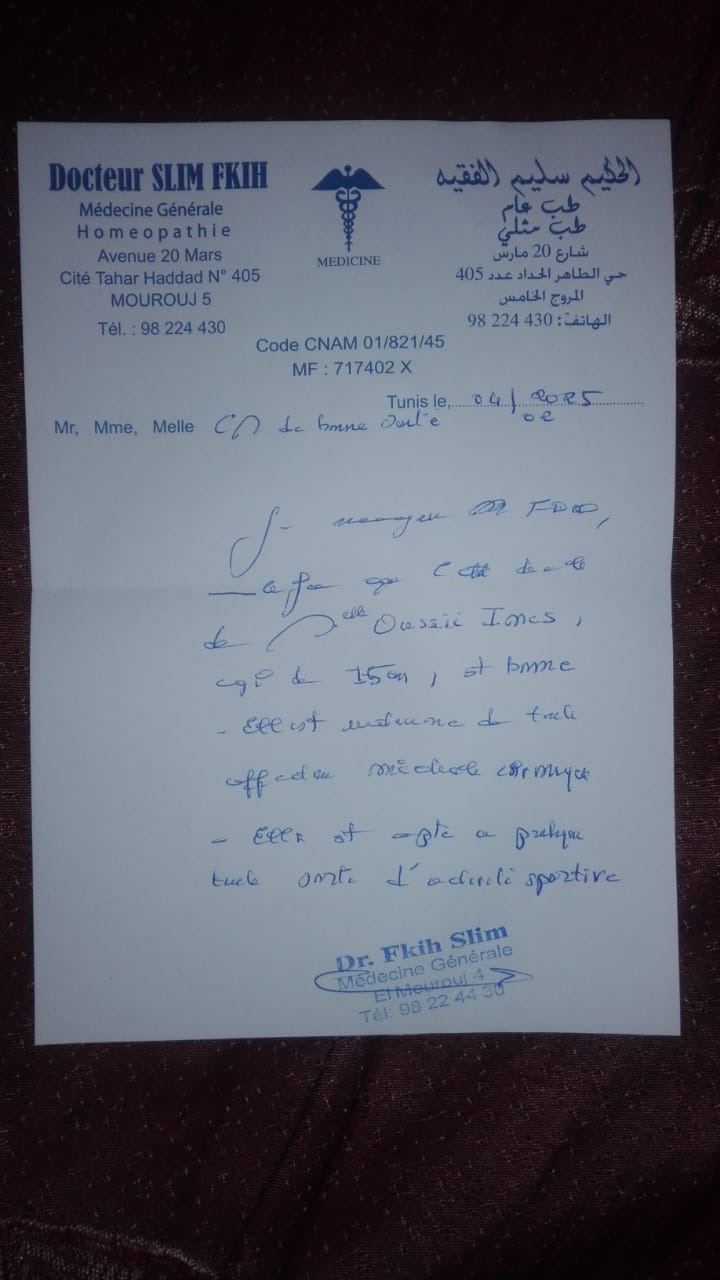 Docteur SLIM FKIH
Médecine Générale
Homeopathie
Avenue 20 Mars
Cité Tahar Haddad N° 405
MOUROUJ 5
Tél. : 98 224 430
MEDICINE
الحكيم سليم الفقيه
طب عام
طب مثلي
شارع 20 مارس
حي الطاهر الحداد عدد 405
المروج الخامس
الهاتف : 430 224 98
Code CNAM 01/821/45
MF : 717402 X
Tunis le, 04/02 2025
Mr, Mme, Melle CM de bonne santé
que l'état de santé
de Melle Ines,
agé de 15 an, est bonne
- Elle est indemne de toute
affection médicale
- Elle est apte a pratique
toute sorte d'activité sportive
Dr. Fkih Slim
Médecine Générale
El Mourouj 4
Tél: 98 22 44 30